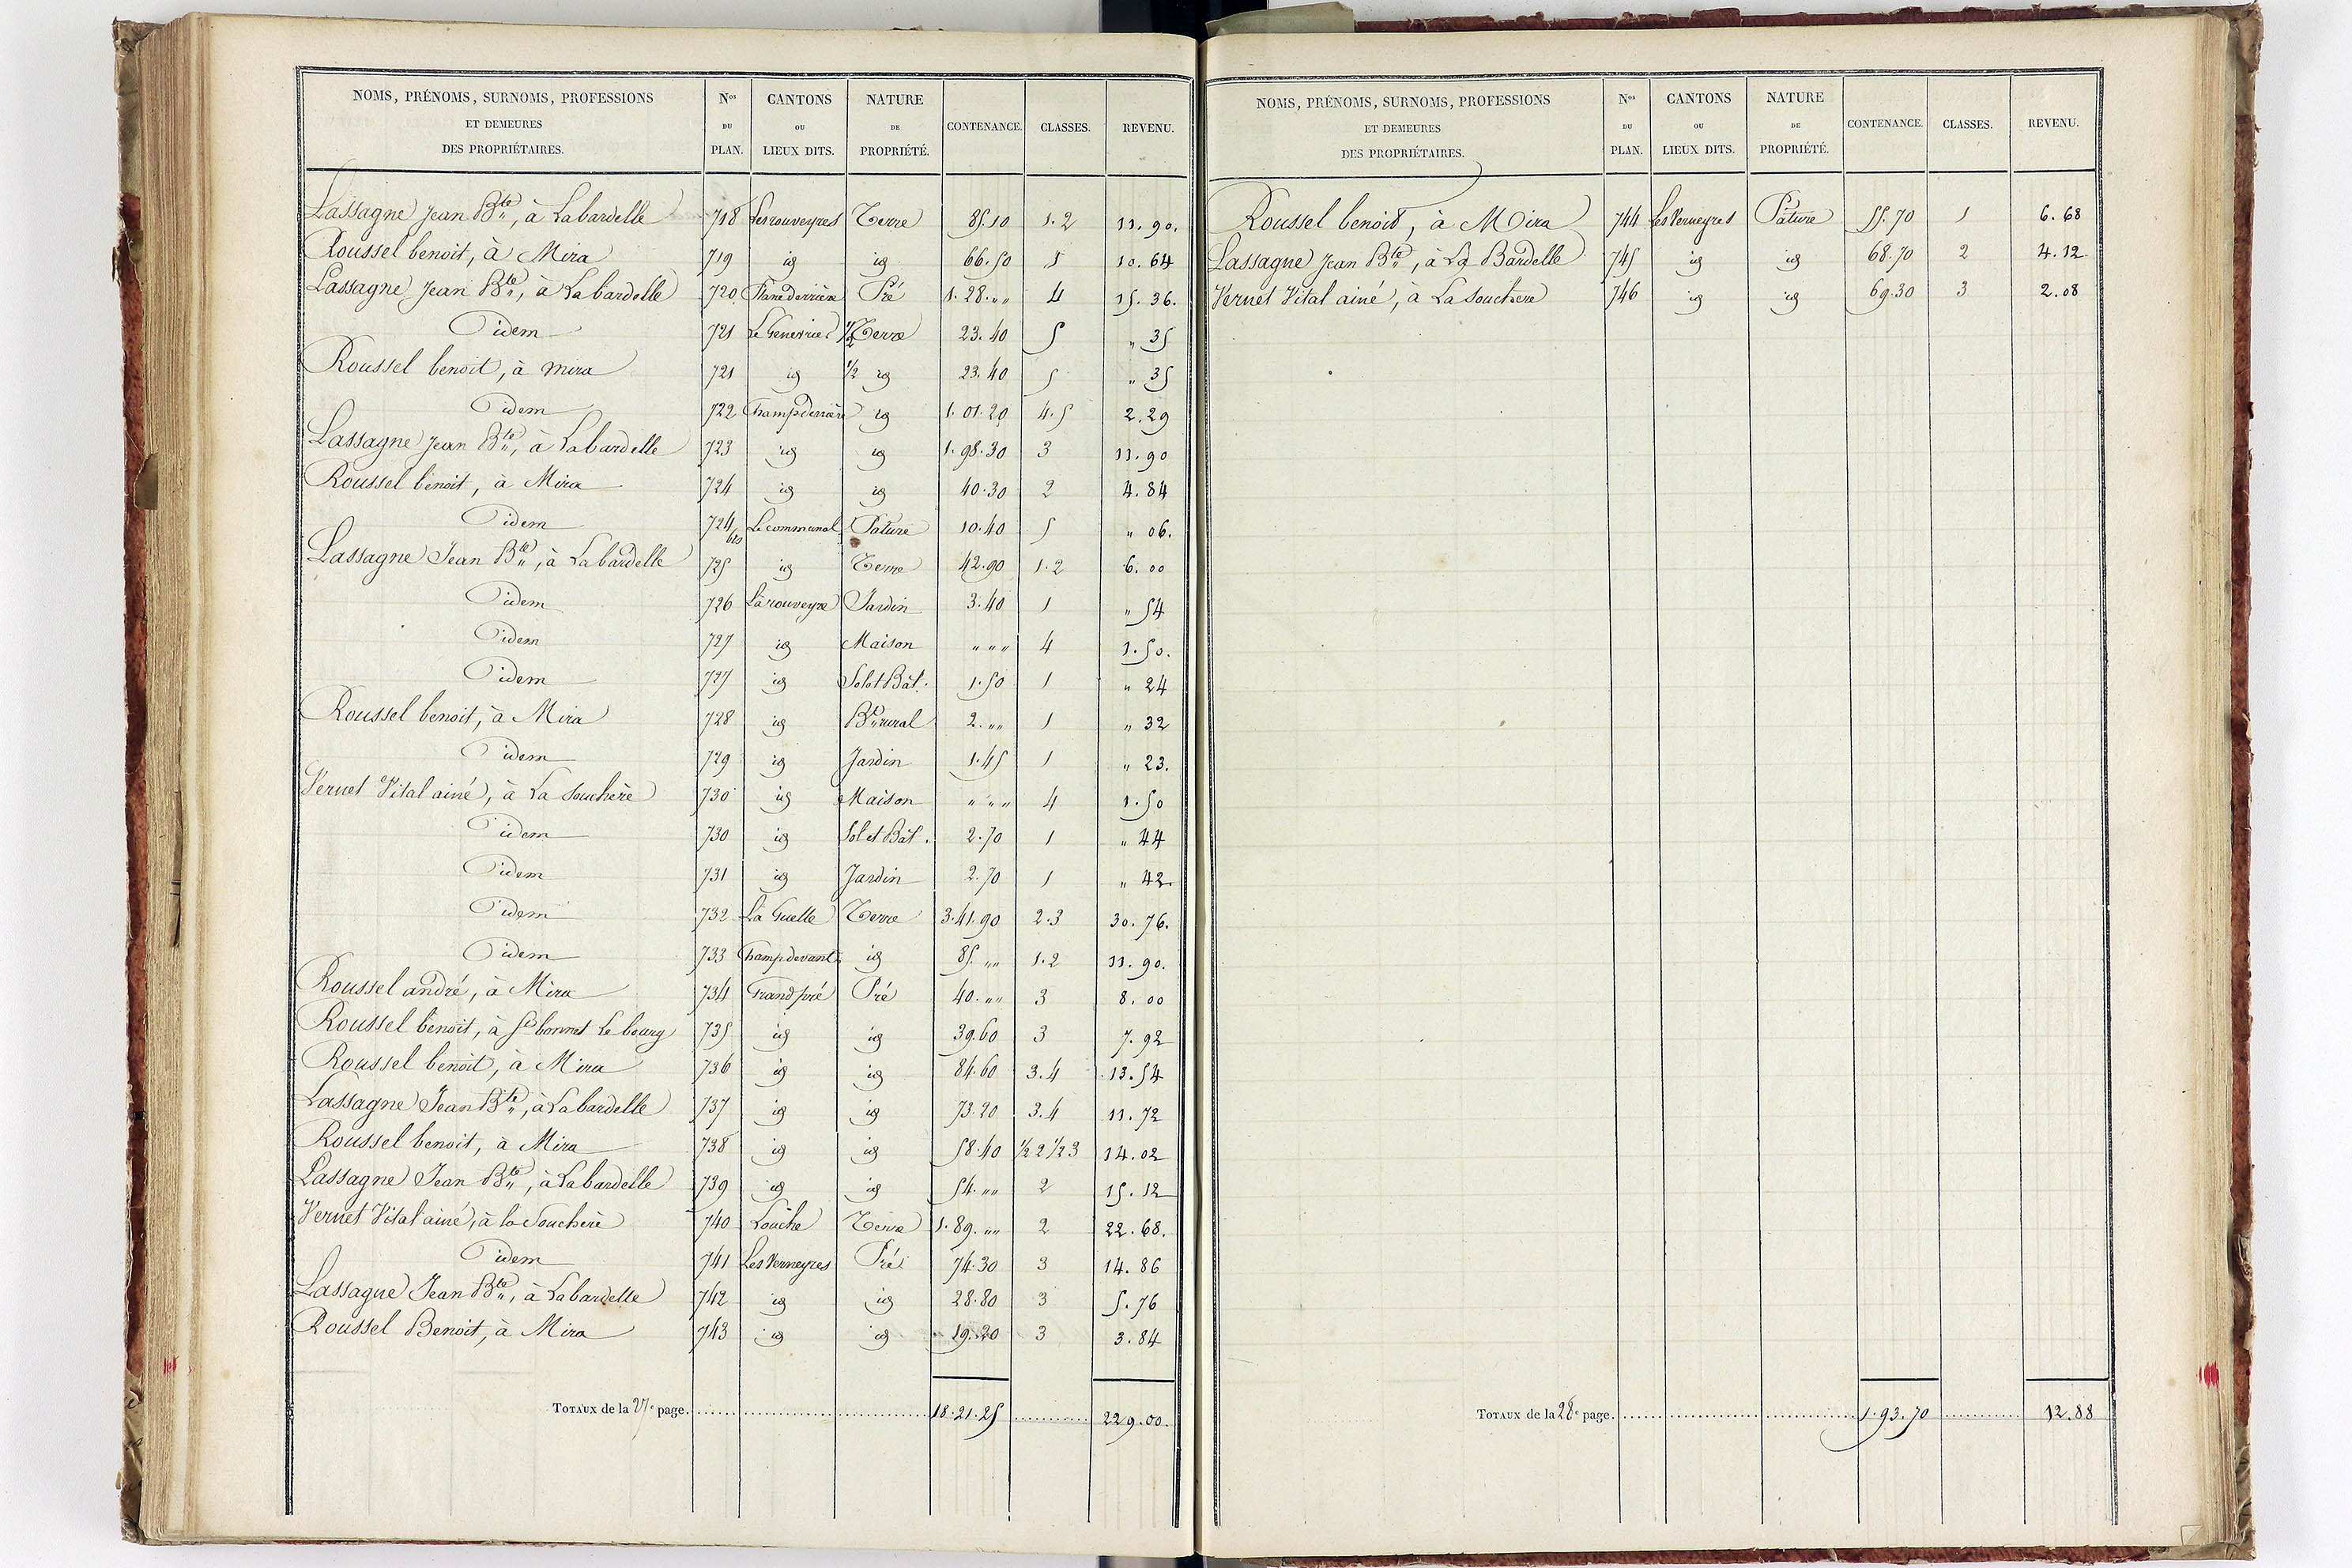 NOMS, PRÉNOMS, SURNOMS, PROFESSIONS ET DEMEURES DES PROPRIÉTAIRES. Nos DU PLAN. CANTONS OU LIEUX DITS. NATURE DE PROPRIÉTÉ. CONTENANCE. CLASSES. REVENU.
Lassagne Jean Bte, à Labardelle 718 Les rouveyres Terre 85.10 1.2 11.90.
Roussel benoit, à Mira 719 id id 66.50 1 10.64
Lassagne Jean Bte, à Labardelle 720 derrière Pré 1.28.„„ 4 15.36.
Idem 721 Le Genevrier 1/2 Terre 23.40 5 „ 35
Roussel benoit, à Mira 721 id 1/2 id 23.40 5 „ 35
Idem 722 Champ derrière id 1.01.20 4.5 2.29
Lassagne Jean Bte, à Labardelle 723 id id 1.98.30 3 11.90
Roussel benoit, à Mira 724 id id 40.30 2 4.84
Idem 724 bis Le communal Pature 10.40 5 „ 06.
Lassagne Jean Bte, à Labardelle 725 id Terre 42.90 1.2 6.00
Idem 726 La rouveyre Jardin 3.40 1 „ 54
Idem 727 id Maison „ „ „ 4 1.50.
Idem 727 id Sol et Bât. 1.50 1 „ 24
Roussel benoit, à Mira 728 id Bt rural 2.„„ 1 „ 32
Idem 729 id Jardin 1.45 1 „ 23.
Vernet Vital ainé, à La Souchère 730 id Maison „ „ „ 4 1.50
Idem 730 id Sol et Bât. 2.70 1 „ 44
Idem 731 id Jardin 2.70 1 „ 42.
Idem 732 La Guelle Terre 3.41.90 2.3 30.76.
Idem 733 Champ devant id 85.„„ 1.2 11.90.
Roussel andré, à Mira 734 Grand pré Pré 40.„„ 3 8.00
Roussel benoit, à St bonnet Le bourg 735 id id 39.60 3 7.92
Roussel benoit, à Mira 736 id id 84.60 3.4 13.54
Lassagne Jean Bte, à Labardelle 737 id id 73.20 3.4 11.72
Roussel benoit, à Mira 738 id id 58.40 1/2 2 1/2 3 14.02
Lassagne Jean Bte, à Labardelle 739 id id 54.„„ 2 15.12
Vernet Vital ainé, à la Souchère 740 Louche Terre 1.89.„„ 2 22.68.
Idem 741 Les Verneyres Pré 74.30 3 14.86
Lassagne Jean Bte, à Labardelle 742 id id 28.80 3 5.76
Roussel Benoit, à Mira 743 id id 19.20 3 3.84
TOTAUX de la 27e page. 18.21.25 229.00.
NOMS, PRÉNOMS, SURNOMS, PROFESSIONS ET DEMEURES DES PROPRIÉTAIRES. Nos DU PLAN. CANTONS OU LIEUX DITS. NATURE DE PROPRIÉTÉ. CONTENANCE. CLASSES. REVENU.
Roussel benoit, à Mira 744 Les Verneyres Pâture 55.70 1 6.68
Lassagne Jean Bte, à La Bardelle 745 id id 68.70 2 4.12
Vernet Vital ainé, à La Souchère 746 id id 69.30 3 2.08
TOTAUX de la 28e page. 1.93.70 12.88